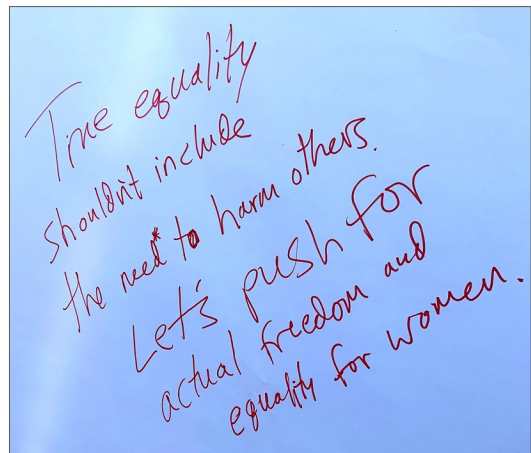 True equality
shouldn't include
the need to harm others.
Let's push for
actual freedom and
equality for women.